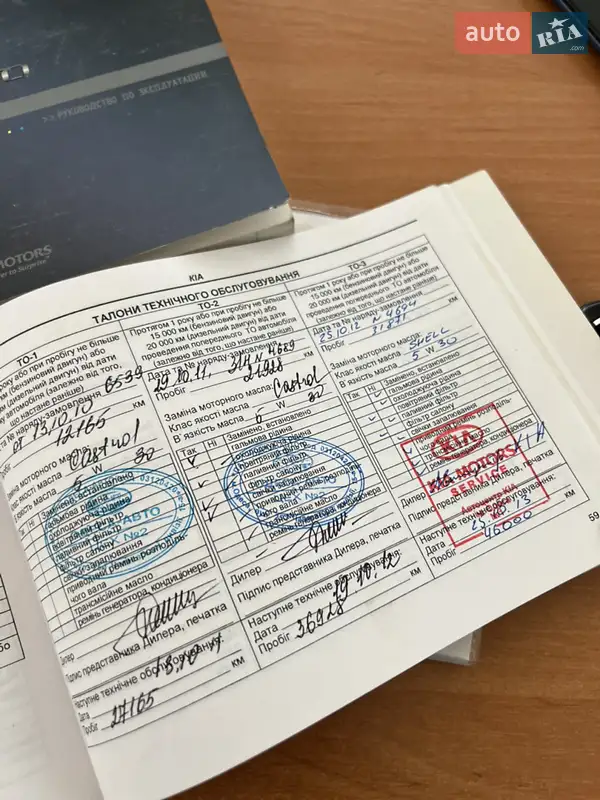 auto RIA.com
>> РУКОВОДСТВО ПО ЭКСПЛУАТАЦИИ
MOTORS
KIA
ТАЛОНИ ТЕХНІЧНОГО ОБСЛУГОВУВАННЯ
ТО-1
року або при пробігу не більше
км (бензиновий двигун) або
км (дизельний двигун) від дати
автомобіля (залежно від того,
що настане раніше)
6539
от 13.10.10
12165
Castrol
5 W 30
Так Ні Замінено, встановлено
гальмова рідина
паливний фільтр
фільтр салону
свічки запалювання
чого вала
трансмісійне масло
ремінь генератора, кондиціонера
АВТО
№2
Дилер
Підпис представника Дилера, печатка
Наступне технічне обслуговування:
Дата
Пробіг 27165 км
ТО-2
Протягом 1 року або при пробігу не більше
15 000 км (бензиновий двигун) або
20 000 км (дизельний двигун) від дати
проведення попереднього ТО автомобіля
(залежно від того, що настане раніше)
Дата та № наряду-замовлення
19.10.11. 4689
Пробіг 21928 км
Заміна моторного масла:
Клас якості масла Castrol
В`язкість масла 5 W 30
Так Ні Замінено, встановлено
гальмова рідина
охолоджуюча рідина
повітряний фільтр
паливний фільтр
фільтр салону
трансмісійне масло
ремінь генератора, кондиціонера
№2
Дилер
Підпис представника Дилера, печатка
Наступне технічне обслуговування:
Дата 19.10.12
Пробіг 36928 км
ТО-3
Протягом 1 року або при пробігу не більше
15 000 км (бензиновий двигун) або
20 000 км (дизельний двигун) від дати
проведення попереднього ТО автомобіля
(залежно від того, що настане раніше)
Дата та № наряду-замовлення
25.10.12 N
Пробіг 31871 км
Заміна моторного масла:
Клас якості масла SHELL
В`язкість масла 5 W 30
Так Ні Замінено, встановлено
гальмова рідина
охолоджуюча рідина
повітряний фільтр
паливний фільтр
фільтр салону
свічки запалювання
KIA
KIA MOTORS
SERVICE
Автоцентр КІА
Дилер
Підпис представника Дилера, печатка
Наступне технічне обслуговування:
Дата 25.10.13
Пробіг 46000 км
59